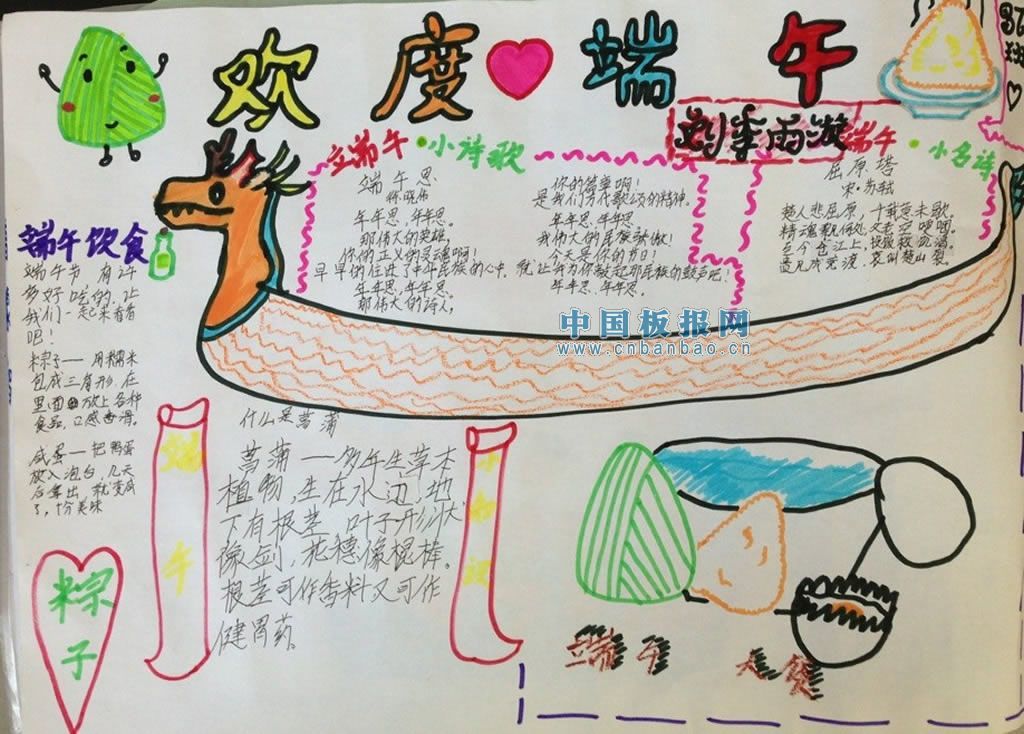 欢度端午
端午·小诗歌
端午思
年年思、年年思。
那伟大的英雄,
你的正义的灵魂啊!
早早的住进了中华民族的心中,
年年思、年年思。
那伟大的诗人,
你的简单啊!
是我们万代歌颂的精神。
年年思、年年思。
我伟大的民族骄傲!
今天是你的节日!
年年思、年年思。
端午·小名诗
屈原塔
宋·苏轼
楚人悲屈原,千载意未歇。
精魂飘何处,父老空哽咽。
至今仓江上,投饭救饥渴。
遗风成竞渡,哀叫楚山裂。
端午饮食
端午节,有许
多好吃的,让
我们一起来看看
吧!
粽子——用糯米
包成三角形,在
里面放上各种
食品,口感香滑。
咸蛋——把鸭蛋
放入泡台,几天
后拿出,就变成
了,十分美味
中国板报网
www.cnbanbao.cn
什么是菖蒲
菖蒲——多年生草本
植物,生在水边,地
下有根茎,叶子形状
像剑,花穗像棍棒。
根茎可作香料又可作
健胃药。
端午
小知识
粽子
端午